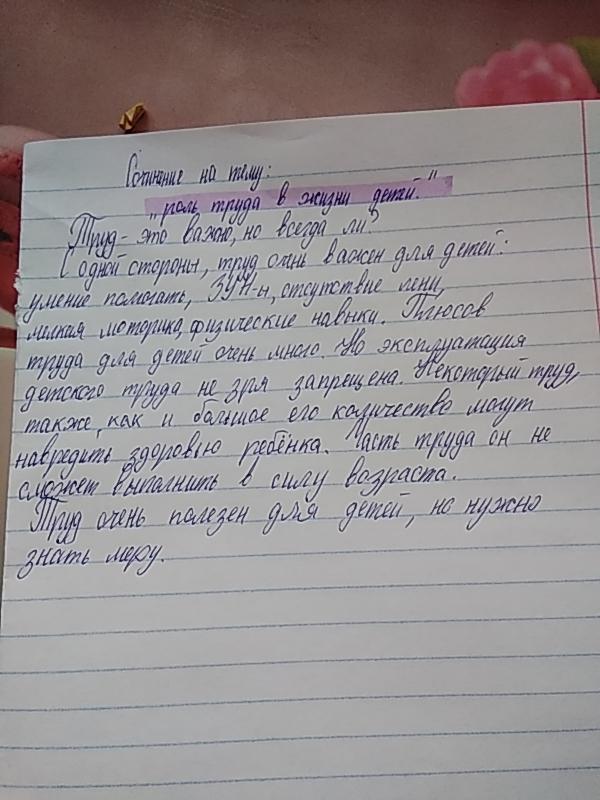 Сочинение на тему:
„роль труда в жизни детей."
Труд - это важно, но всегда ли?
С одной стороны, труд очень важен для детей:
умение помогать, ЗУН-ы, отсутствие лени,
мелкая моторика, физические навыки. Плюсов
труда для детей очень много. Но эксплуатация
детского труда не зря запрещена. Некоторый труд,
также, как и большое его количество могут
навредить здоровью ребёнка. Часть труда он не
сможет выполнить в силу возраста.
Труд очень полезен для детей, но нужно
знать меру.